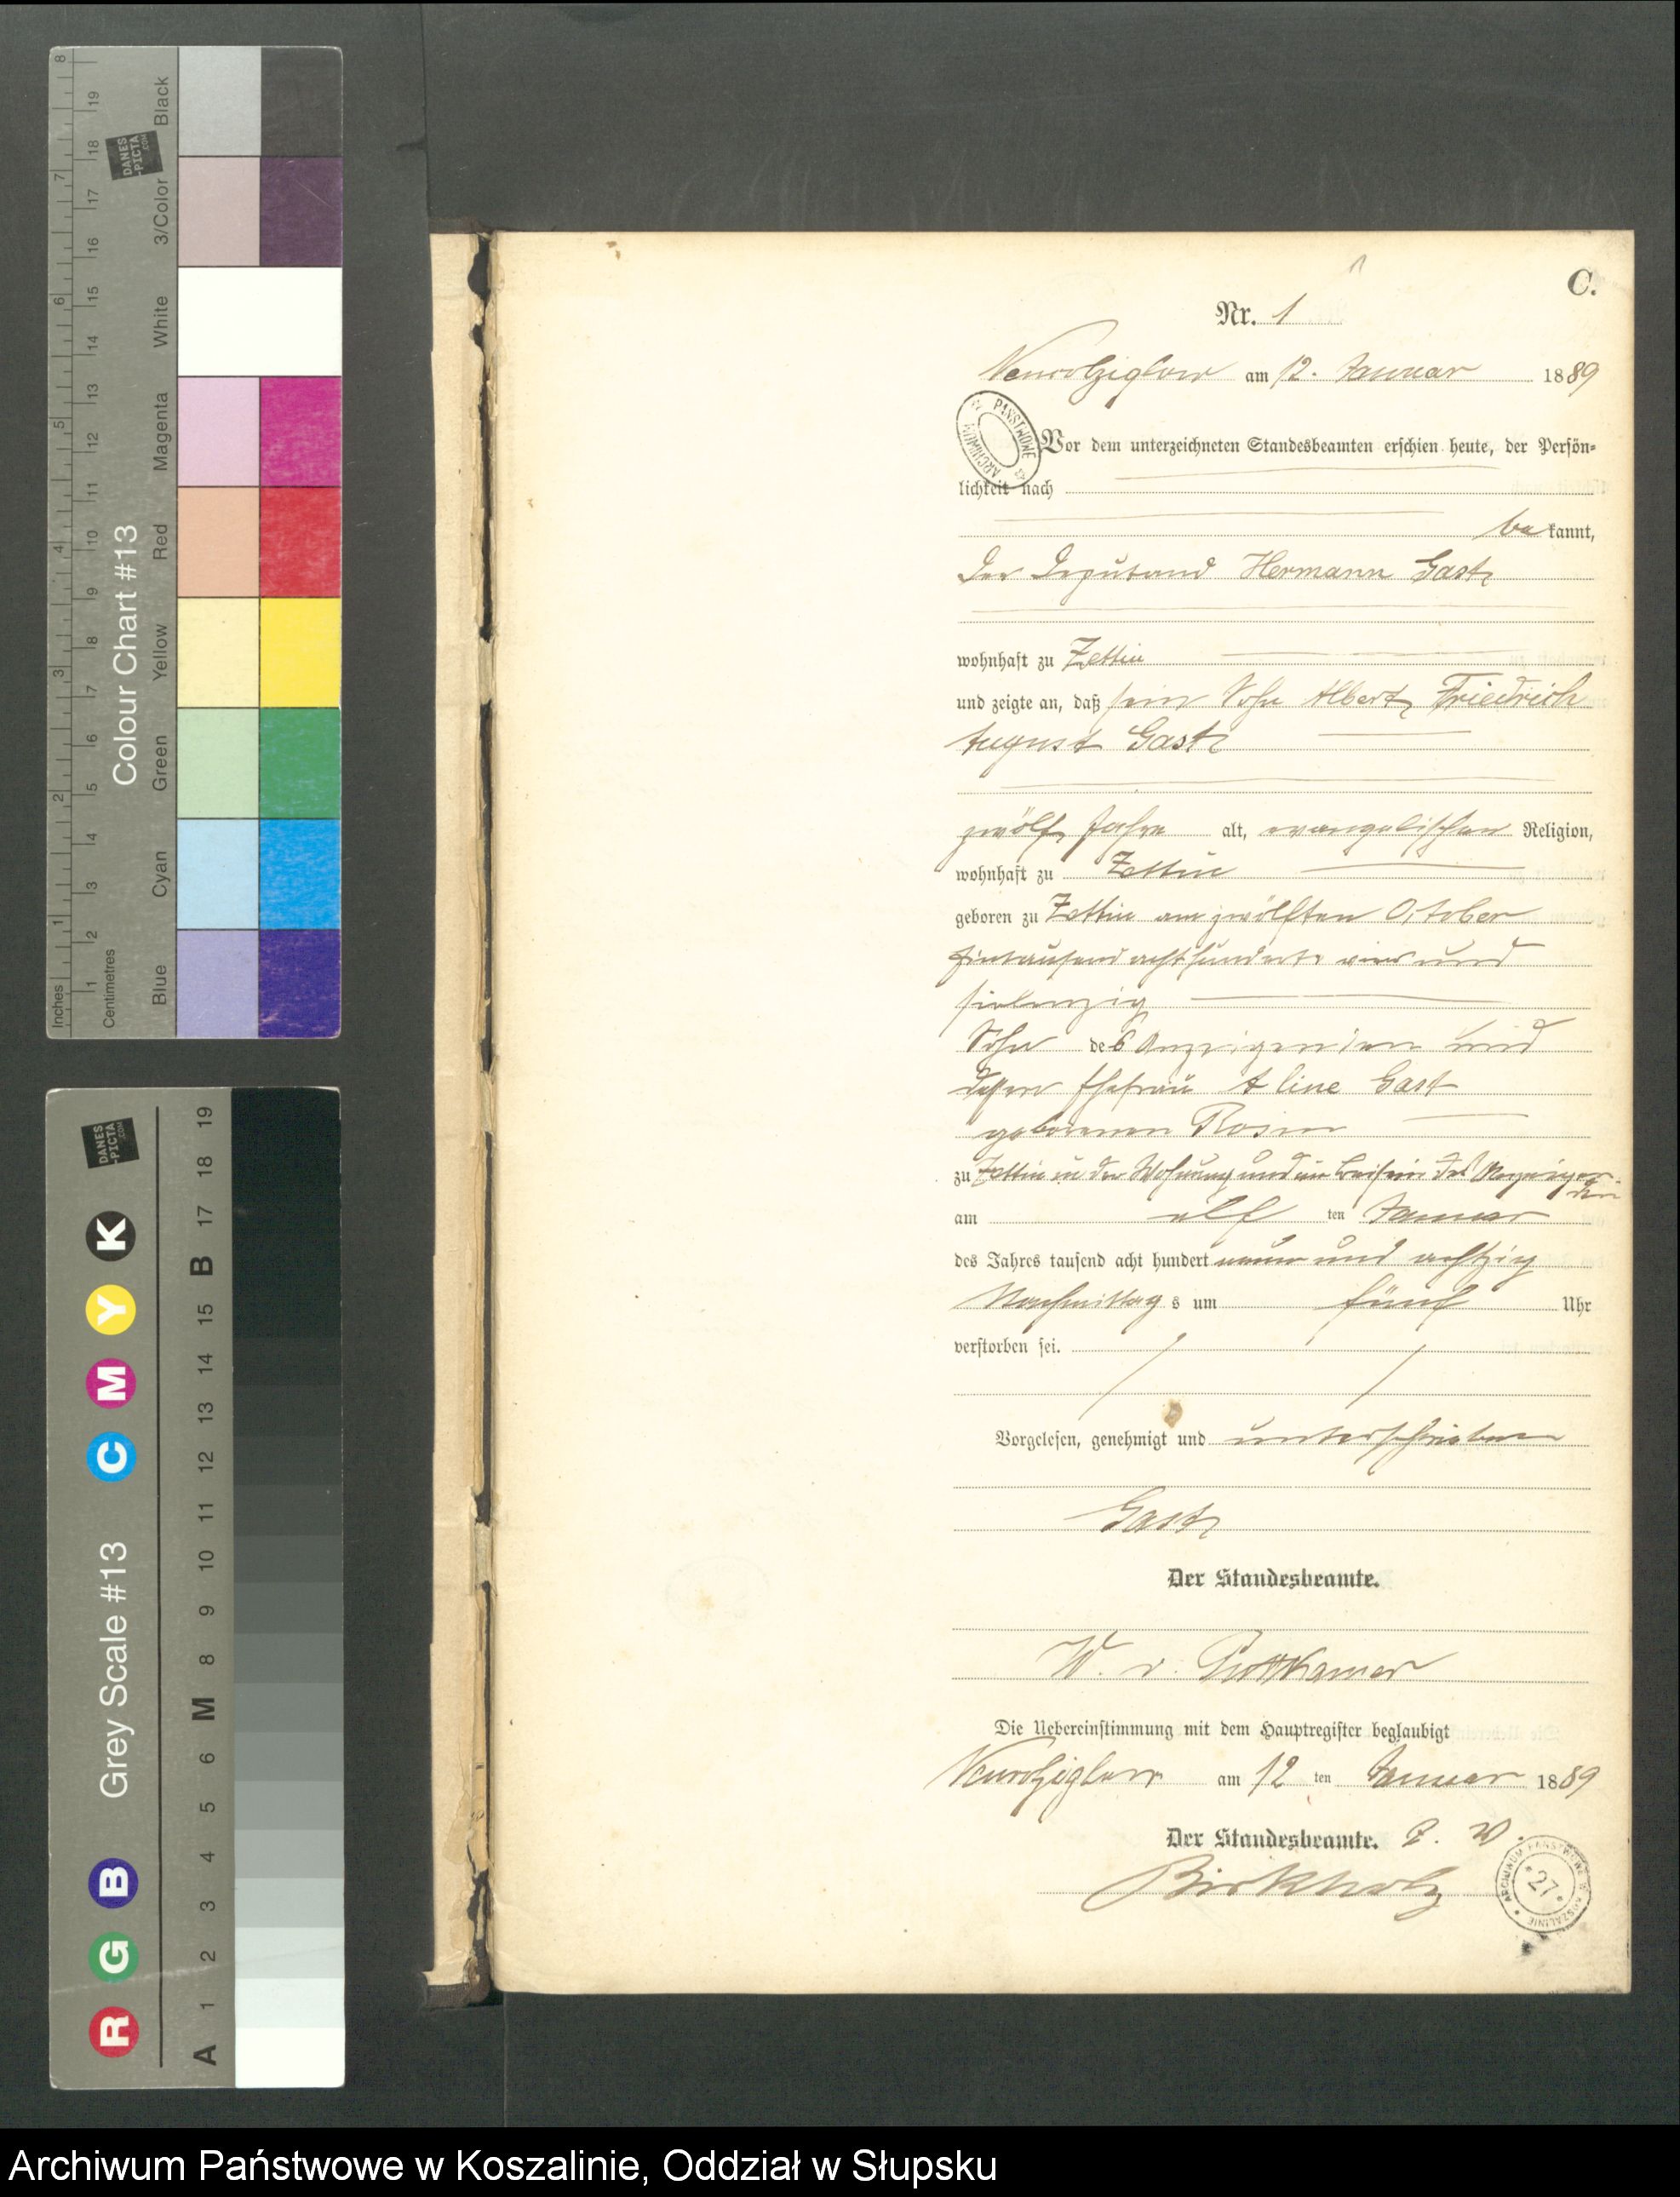 Inches
Centimetres
1 2 3 4 5 6 7 8
1 2 3 4 5 6 7 8 9 10 11 12 13 14 15 16 17 18 19
DANES
-PICTA
.COM
Colour Chart #13
Blue Cyan Green Yellow Red Magenta White 3/Color Black
DANES
-PICTA
.COM
Grey Scale #13
R G B C M Y K
A 1 2 3 4 5 6 M 8 9 10 11 12 13 14 15 B 17 18 19
C.
Nr. 1
am 12. Januar 1889
ARCHIWUM PAŃSTWOWE
Vor dem unterzeichneten Standesbeamten erschien heute, der Persön-
lichkeit nach
bekannt,
der Deputand Hermann Gast
wohnhaft zu Zettin
und zeigte an, daß sein Sohn Albert Friedrich
August Gast
zwölf Jahre alt, evangelischen Religion,
wohnhaft zu Zettin
geboren zu Zettin am zwölften October
Eintausend achthundert vier und
siebenzig
Sohn des Anzeigenden und
dessen Ehefrau Aline Gast
geborenen Rosin
zu Zettin in der Wohnung und im Beisein des Anzeigen
den
am elf ten Januar
des Jahres tausend acht hundert neun und achtzig
Nachmittags um fünf Uhr
verstorben sei.
Vorgelesen, genehmigt und unterschrieben
Gast
Der Standesbeamte.
W. v. Puttkamer
Die Uebereinstimmung mit dem Hauptregister beglaubigt
am 12 ten Januar 1889
Der Standesbeamte.
Birkholz
ARCHIWUM PAŃSTWOWE W KOSZALINIE
27
Archiwum Państwowe w Koszalinie, Oddział w Słupsku